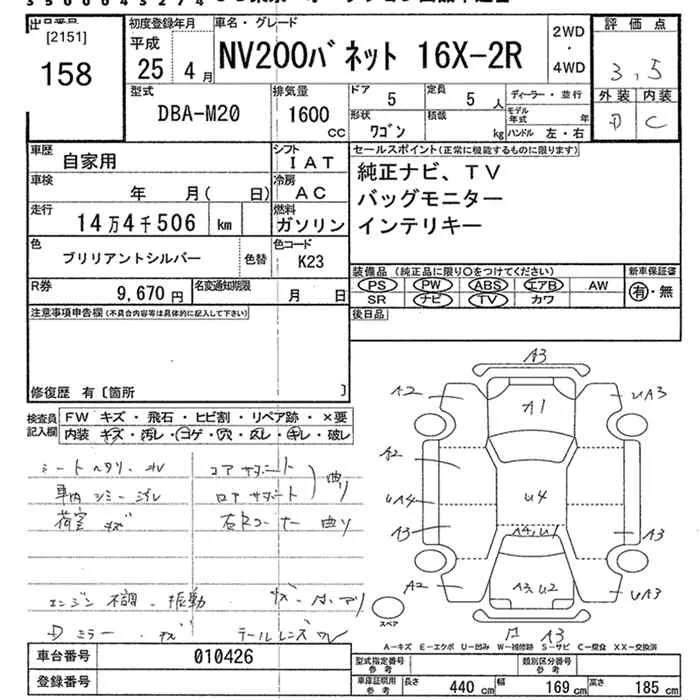 出品番号
[2151]
158
初度登録年月
平成
25 4月
車名・グレード
NV200バネット 16X-2R
2WD
・
4WD
評価点
3.5
外装 内装
D C
型式
DBA-M20
排気量
1600
CC
ドア
5
定員
5 人
形状
ワゴン
積載
kg
ディーラー・並行
モデル年式 年
ハンドル 左・右
車歴
自家用
シフト
IAT
車検
年 月( 日)
冷房
AC
走行
14万4千506 km
燃料
ガソリン
色
ブリリアントシルバー
色替
色コード
K23
R券
9,670円
名変通知期限
月 日
セールスポイント(正常に機能するものに限ります)
純正ナビ、TV
バッグモニター
インテリキー
装備品(純正品に限り○をつけてください)
PS PW ABS エアB AW
SR ナビ TV カワ
新車保証書
有・無
後日品
注意事項申告欄(不具合内容等は具体的に記入して下さい)
修復歴 有〔箇所 〕
検査員
記入欄
FW キズ・飛石・ヒビ割・リペア跡・×要
内装 キズ・汚レ・コゲ・穴・スレ・キレ・破レ
シートヘタリ・スレ
コアサポート
曲り
ロアサポート
荷室 キズ
右Rコーナー 曲り
エンジン 不調・振動
Dミラー・キズ
テールレンズ
A3
A2
A1
UA3
A2
UA4
U4
A3
A4,U1
A3
A2
A3,U2
UA3
A3
スペア
A-キズ E-エクボ U-凹み W-補修跡 S-サビ C-腐食 XX-交換済
車台番号
010426
登録番号
型式指定番号
参考
類別区分番号
参考
車庫証明用
参考
長さ
440 cm
幅
169 cm
高さ
185 cm